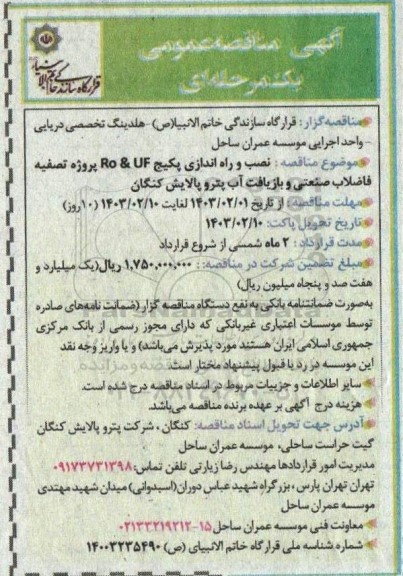 آگهی مناقصه‌عمومی
یک‌مرحله‌ای
قرارگاه سازندگی خاتم الانبیاء
مناقصه‌گزار: قرارگاه سازندگی خاتم الانبیا(ص) -هلدینگ تخصصی دریایی
- واحد اجرایی موسسه عمران ساحل
موضوع مناقصه : نصب و راه اندازی پکیج Ro & UF پروژه تصفیه
فاضلاب صنعتی و بازیافت آب پترو پالایش کنگان
مهلت مناقصه: از تاریخ ۱۴۰۳/۰۲/۰۱ لغایت ۱۴۰۳/۰۲/۱۰ (۱۰روز)
تاریخ تحویل پاکت: ۱۴۰۳/۰۲/۱۰
مدت قرارداد : ۲ ماه شمسی از شروع قرارداد
مبلغ تضمین شرکت در مناقصه: : ۱,۷۵۰,۰۰۰,۰۰۰ ریال(یک میلیارد و
هفت صد و پنجاه میلیون ریال)
به‌صورت ضمانتنامه بانکی به نفع دستگاه مناقصه گزار (ضمانت نامه‌های صادره
توسط موسسات اعتباری غیربانکی که دارای مجوز رسمی از بانک مرکزی
جمهوری اسلامی ایران هستند مورد پذیرش می‌باشد) و یا واریز وجه نقد
این موسسه در رد یا قبول پیشنهاد مختار است.
سایر اطلاعات و جزییات مربوط در اسناد مناقصه درج شده است.
هزینه درج آگهی بر عهده برنده مناقصه می‌باشد.
آدرس جهت تحویل اسناد مناقصه: کنگان ، شرکت پترو پالایش کنگان
گیت حراست ساحلی، موسسه عمران ساحل
مدیریت امور قراردادها مهندس رضا زیارتی تلفن تماس: ۰۹۱۷۳۷۳۱۳۹۸
تهران تهران پارس، بزرگراه شهید عباس دوران(اسبدوانی) میدان شهید مهتدی
موسسه عمران ساحل
معاونت فنی موسسه عمران ساحل ۱۵-۰۲۱۳۳۲۱۹۲۱۲
شماره شناسه ملی قرارگاه خاتم الانبیای (ص) ۱۴۰۰۳۲۳۵۴۹۰